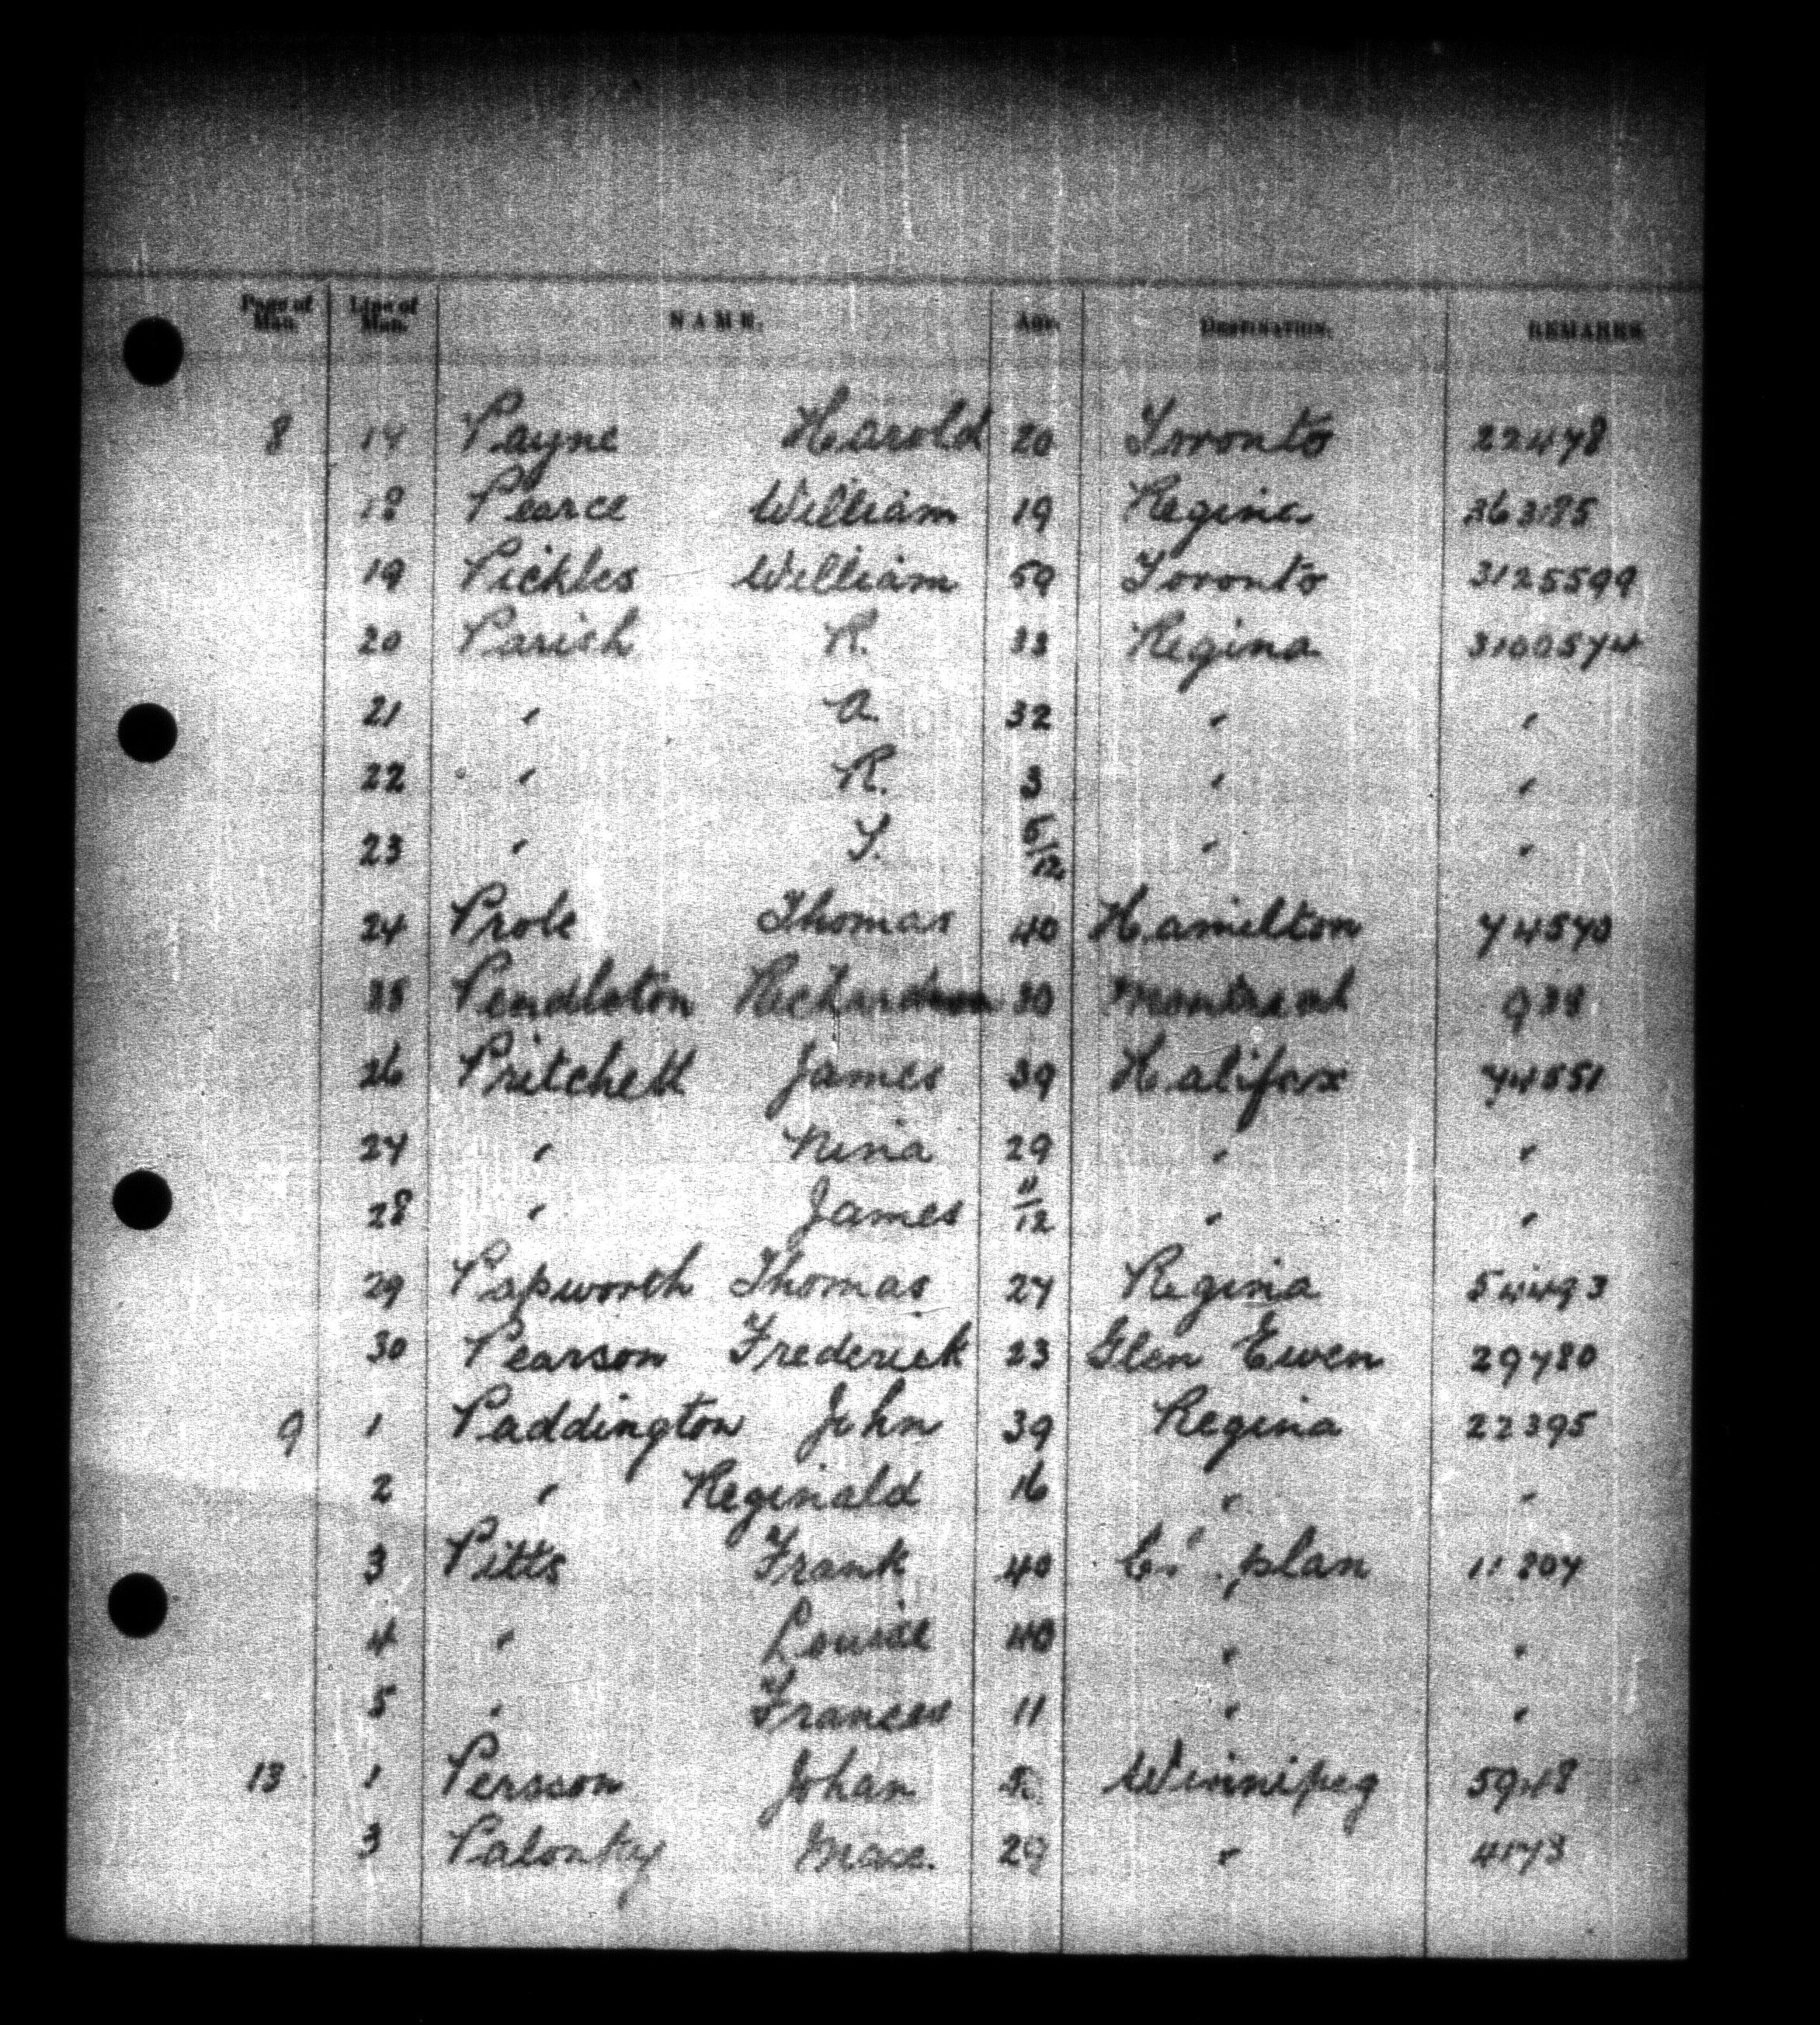 Page of Man. Line of Man. NAME. Age. DESTINATION. REMARKS
8 14 Payne Harold 20 Toronto 22478
18 Pearce William 19 Regina 363185
19 Pickles William 59 Toronto 3125599
20 Parish R. 33 Regina 3100574
21 " A. 32 " "
22 " R. 3 " "
23 " 5/12 " "
24 Prole Thomas 40 Hamilton 74570
25 Pendleton 30 Montreal 938
26 Pritchett James 39 Halifax 74551
27 " Nina 29 " "
28 " James 11/12 " "
29 Papworth Thomas 27 Regina 54493
30 Pearson Frederick 23 Glen Ewen 29780
9 1 Paddington John 39 Regina 22395
2 " Reginald 16 " "
3 Pitts Frank 40 plan 11804
4 " Louise 40 " "
5 " Frances 11 " "
13 1 Persson Johan Winnipeg
3 Palonky 29 " 4173